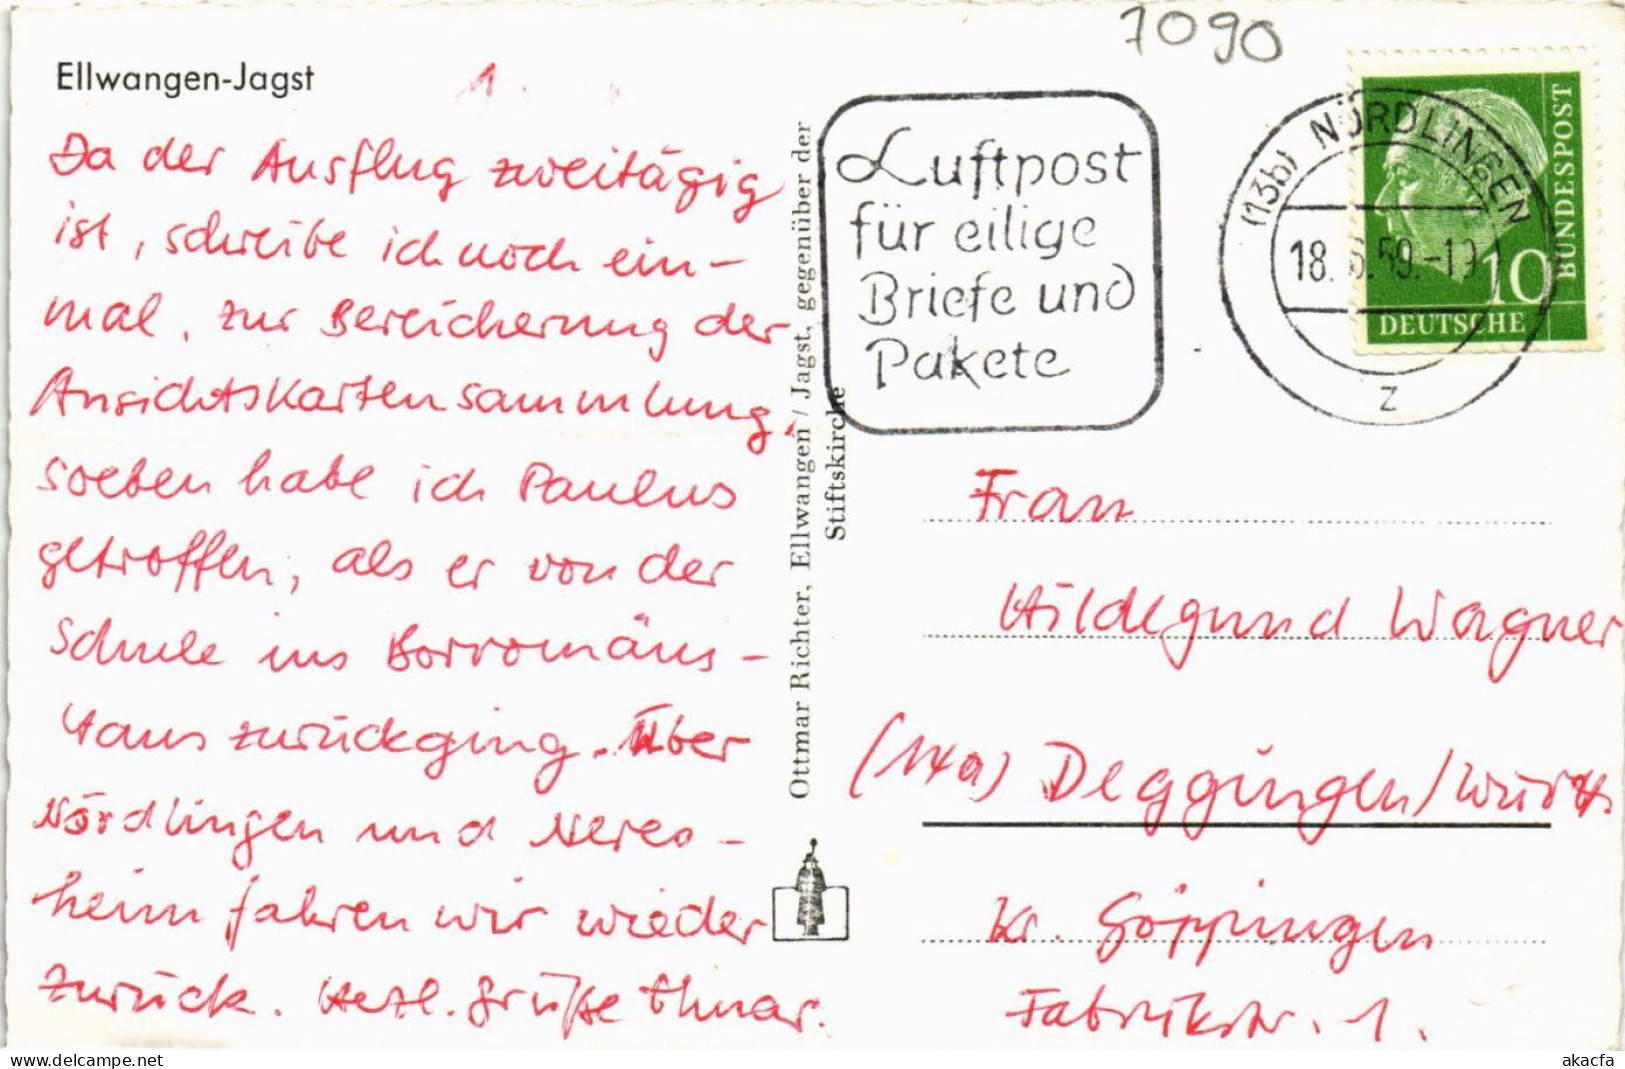 7090
Ellwangen-Jagst
1.
Da der Ausflug zweitägig
ist, schreibe ich noch ein-
mal, zur Bereicherung der
Ansichtskartensammlung.
Soeben habe ich Paulus
getroffen, als er von der
Schule ins Borromäus-
Haus zurückging. Über
Nördlingen und Neres-
heim fahren wir wieder
zurück. Herzl. Grüße Elmar.
Ottmar Richter, Ellwangen / Jagst, gegenüber der
Stiftskirche
Luftpost
für eilige
Briefe und
Pakete
(13b) NÖRDLINGEN
18. 6.59.-19
z
BUNDESPOST
10
DEUTSCHE
Frau
Hildegund Wagner
(14a) Deggingen/Württ.
Kr. Göppingen
Fabrikstr. 1.
delcampe.net
akacfa